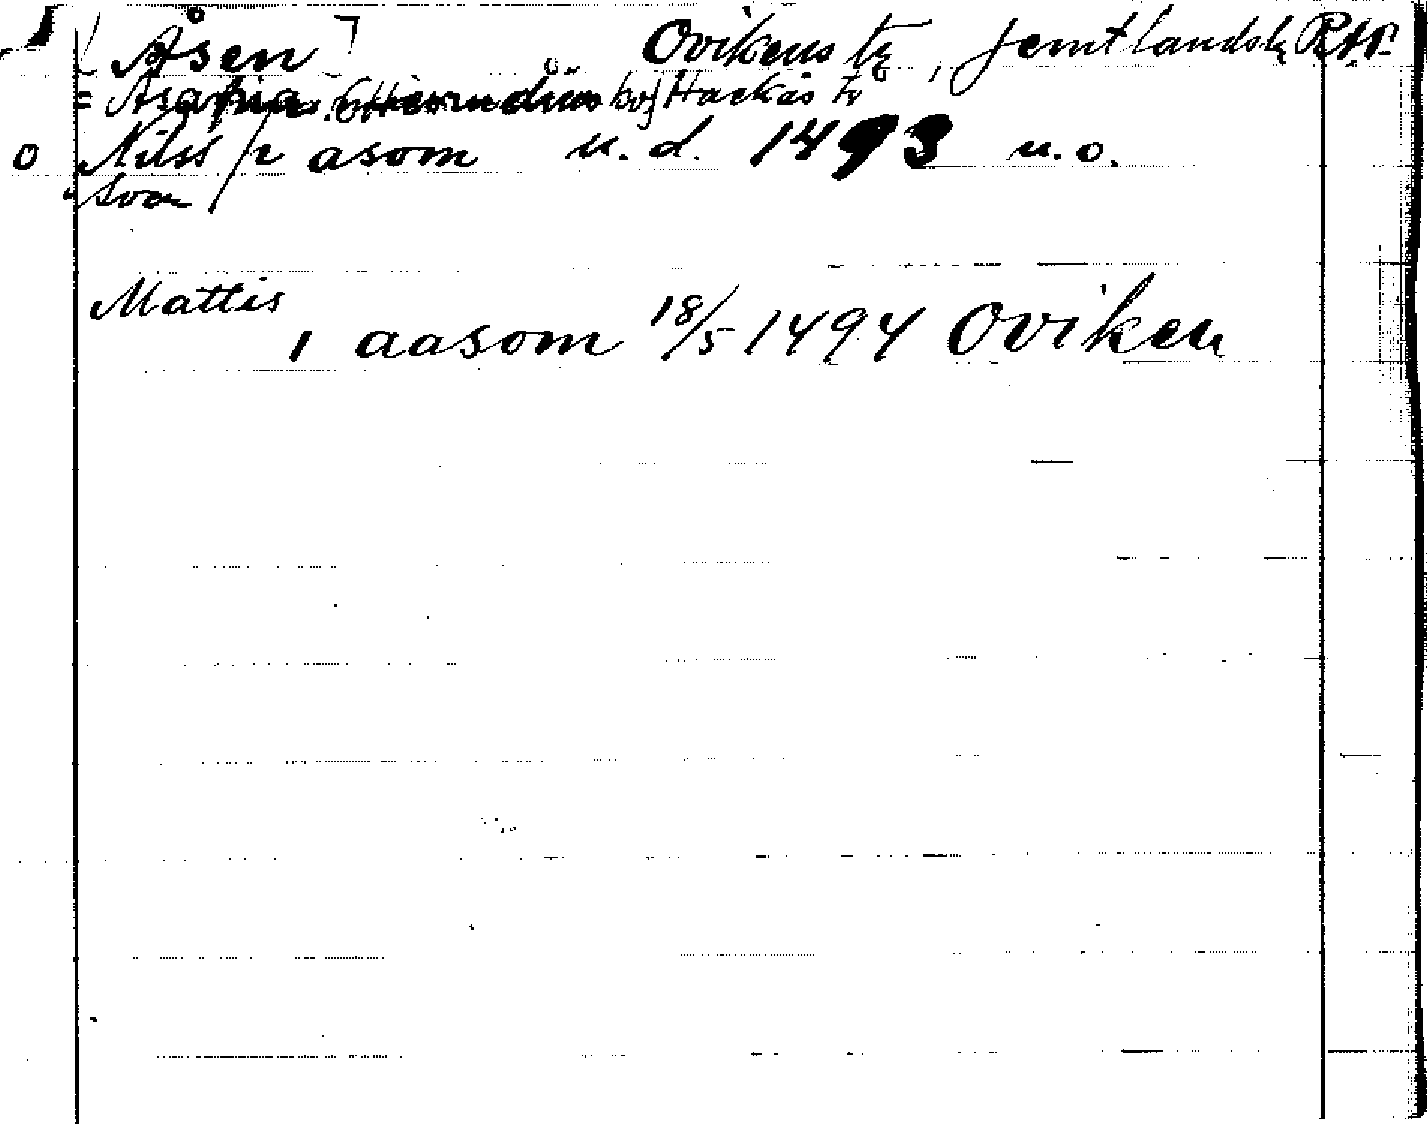 [Åsen] Ovikens tg, Jemtlands l. R.A.P.
= Hackås
o Nilss i asom u. d. 1493 u. o.
Svar
Mattis
i aasom 18/5 1494 Oviken